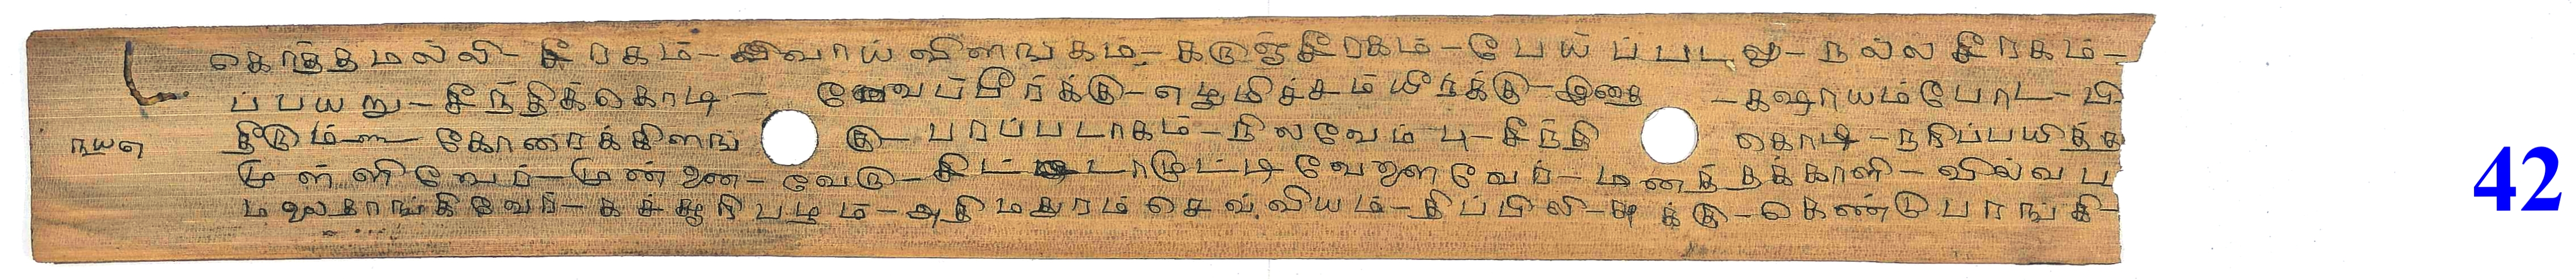 கொத்தமல்லி - சீரகம் - வாய்விளங்கம் - கருஞ்சீரகம் - பேய்ப்படலு - நல்லசீரகம் -
ப்பயறு - சீந்திக்கொடி - வேப்பீர்க்கு - எழுமிச்சம்யீர்க்கு - இதை - கஷாயம்போட - பி
திரும் - கோரைக்கிளங்கு - பரப்படாகம் - நிலவேம்பு - சீந்திகொடி - நரிப்பயித்த
முள்ளிவேர் - முன்னை - வேரு - சிட்டாமுட்டிவேளைவேர் - மணத்தக்காளி - வில்வ ப
மூலகாங்கிவேர் - கச்சூரிபழம் - அதிமதுரம் செவ்வியம் - திப்பிலி - சுக்கு - கெண்டுபாரங்கி -
42